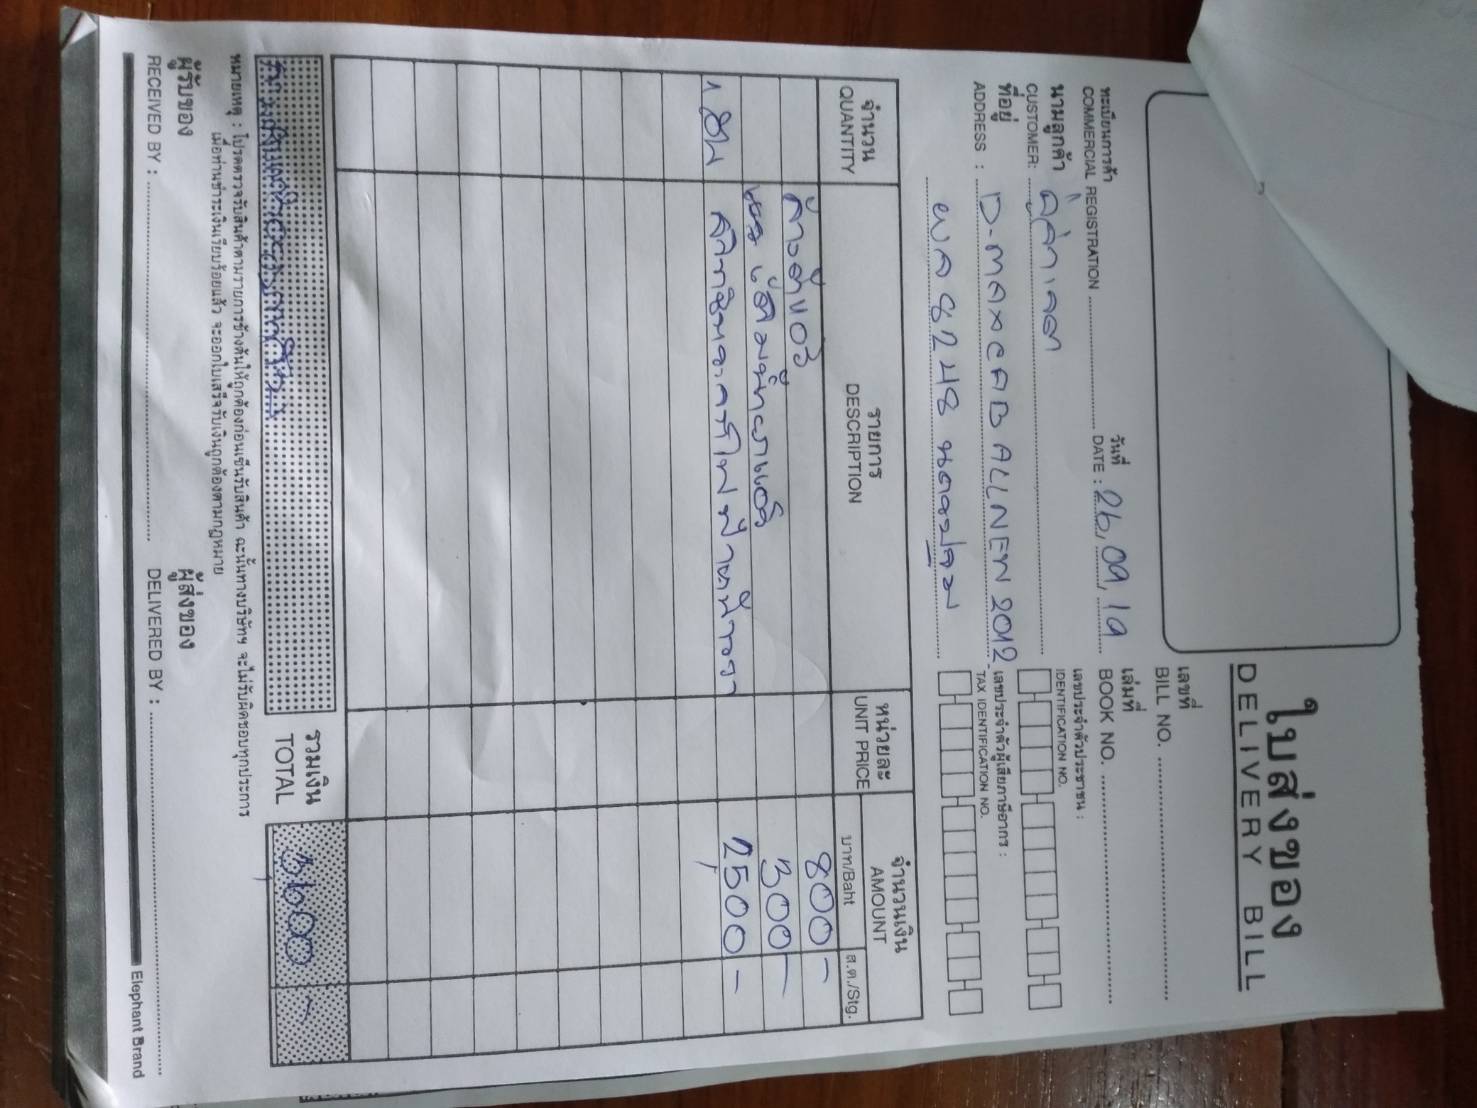 ใบส่งของ
DELIVERY BILL
เลขที่
BILL NO.
ทะเบียนการค้า
COMMERCIAL REGISTRATION
วันที่
DATE : 26,09,19
เล่มที่
BOOK NO.
นามลูกค้า
CUSTOMER:
เลขประจำตัวประชาชน :
IDENTIFICATION NO.
ที่อยู่
ADDRESS : D-MAX CAB ALL NEW 2012
เลขประจำตัวผู้เสียภาษีอากร :
TAX IDENTIFICATION NO.
8248 นครปฐม
จำนวน
QUANTITY
รายการ
DESCRIPTION
หน่วยละ
UNIT PRICE
จำนวนเงิน
AMOUNT
บาท/Baht
ส.ต./Stg.
800 -
300 -
1 2,500 -
รวมเงิน
TOTAL
3,600 -
หมายเหตุ : โปรดตรวจรับสินค้าตามรายการข้างต้นให้ถูกต้องก่อนเซ็นรับสินค้า ฉะนั้นทางบริษัทฯ จะไม่รับผิดชอบทุกประการ
เมื่อท่านชำระเงินเรียบร้อยแล้ว จะออกใบเสร็จรับเงินถูกต้องตามกฎหมาย
ผู้รับของ
RECEIVED BY :
ผู้ส่งของ
DELIVERED BY :
Elephant Brand